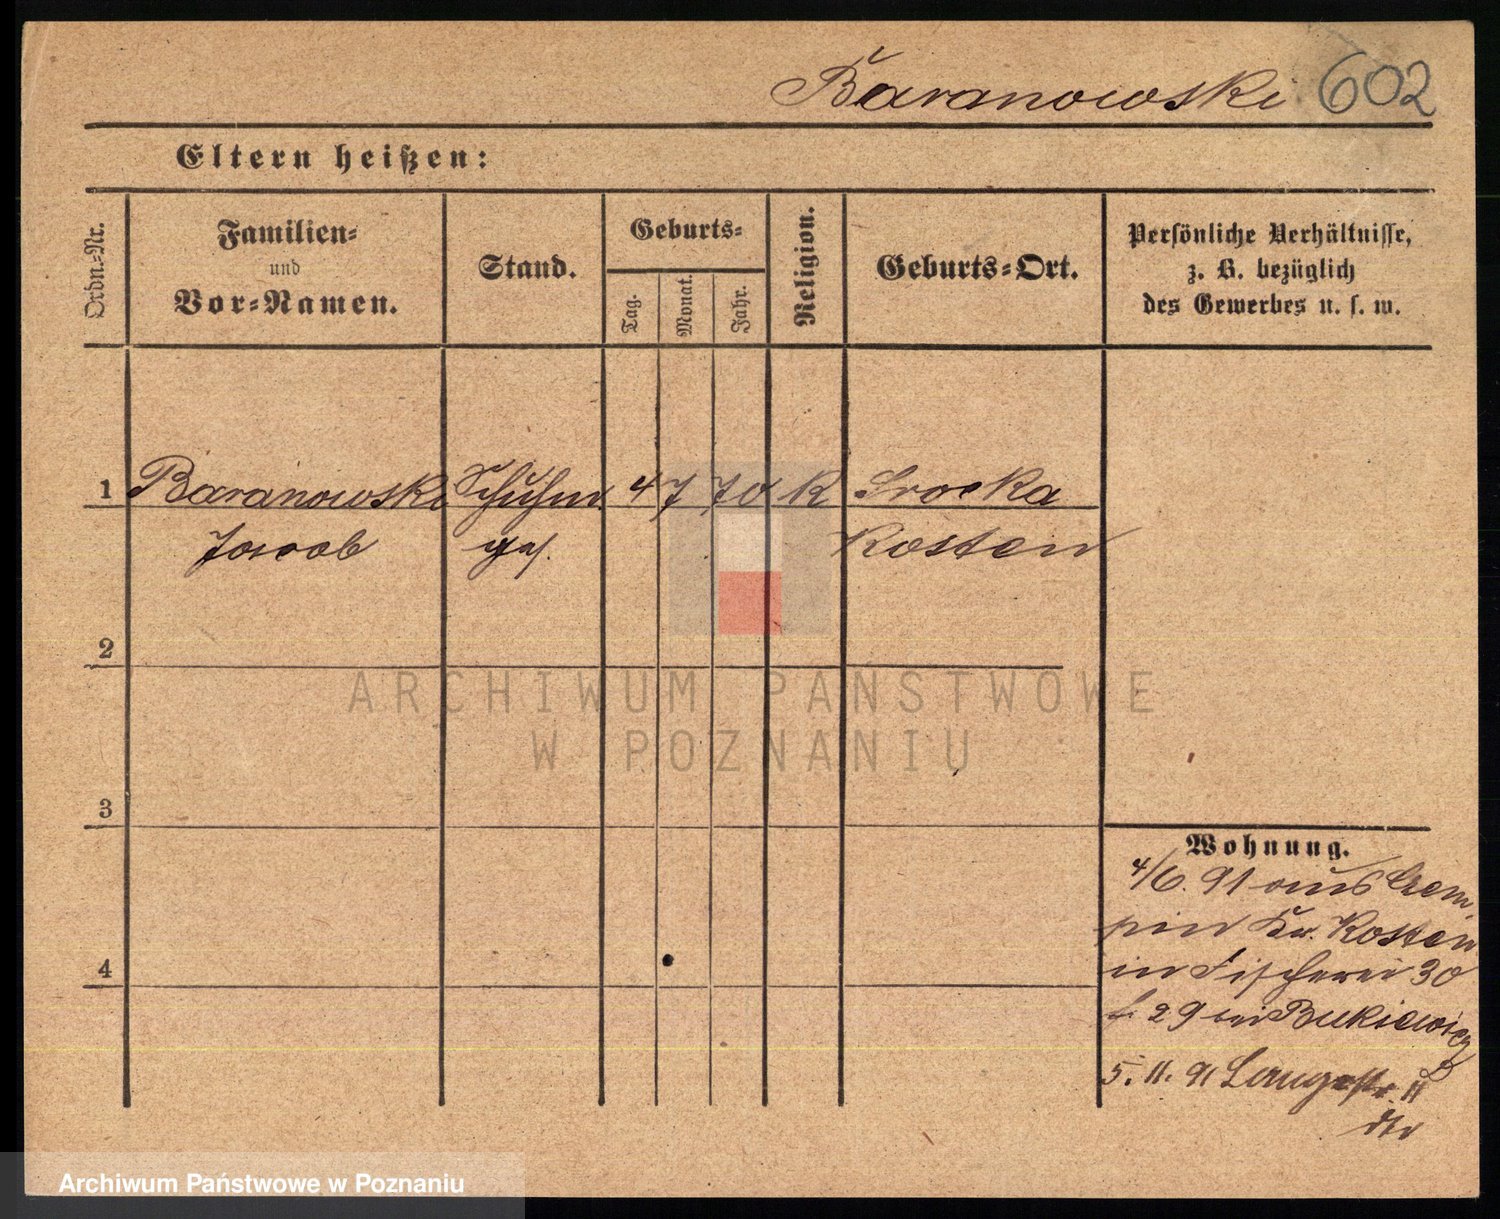 Baranowski 602
Eltern heißen:
Ordn.-Nr.
Familien-
und
Vor-Namen.
Stand.
Geburts-
Tag.
Monat.
Jahr.
Religion.
Geburts-Ort.
Persönliche Verhältnisse,
z. B. bezüglich
des Gewerbes u. s. w.
1 Baranowski Schuhm 4 7 70 K Srocka
Jacob ges. Kosten
2
ARCHIWUM PAŃSTWOWE
W POZNANIU
3
Wohnung.
4/6. 91 aus Czem
pin Kr. Kosten
4
in Fischerei 30
29 bei Bukiewicz
5. 11. 91 Langestr. 11
Archiwum Państwowe w Poznaniu